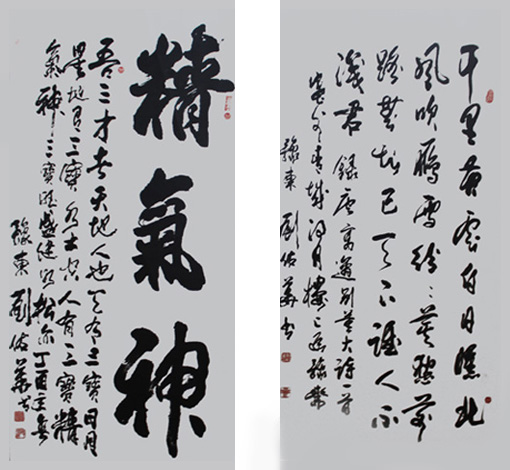 精氣神
吾三才者天地人也天有三寶日月
星地有三寶水土火人有三寶精
氣神三寶旺盛健如松亦丁酉
豫東劉佑華書
千里黃雲白日曛北
風吹鴈雪紛紛莫愁前
路無知己天下誰人不
識君 錄唐高適別董大詩一首
月樓
豫東劉佑華書